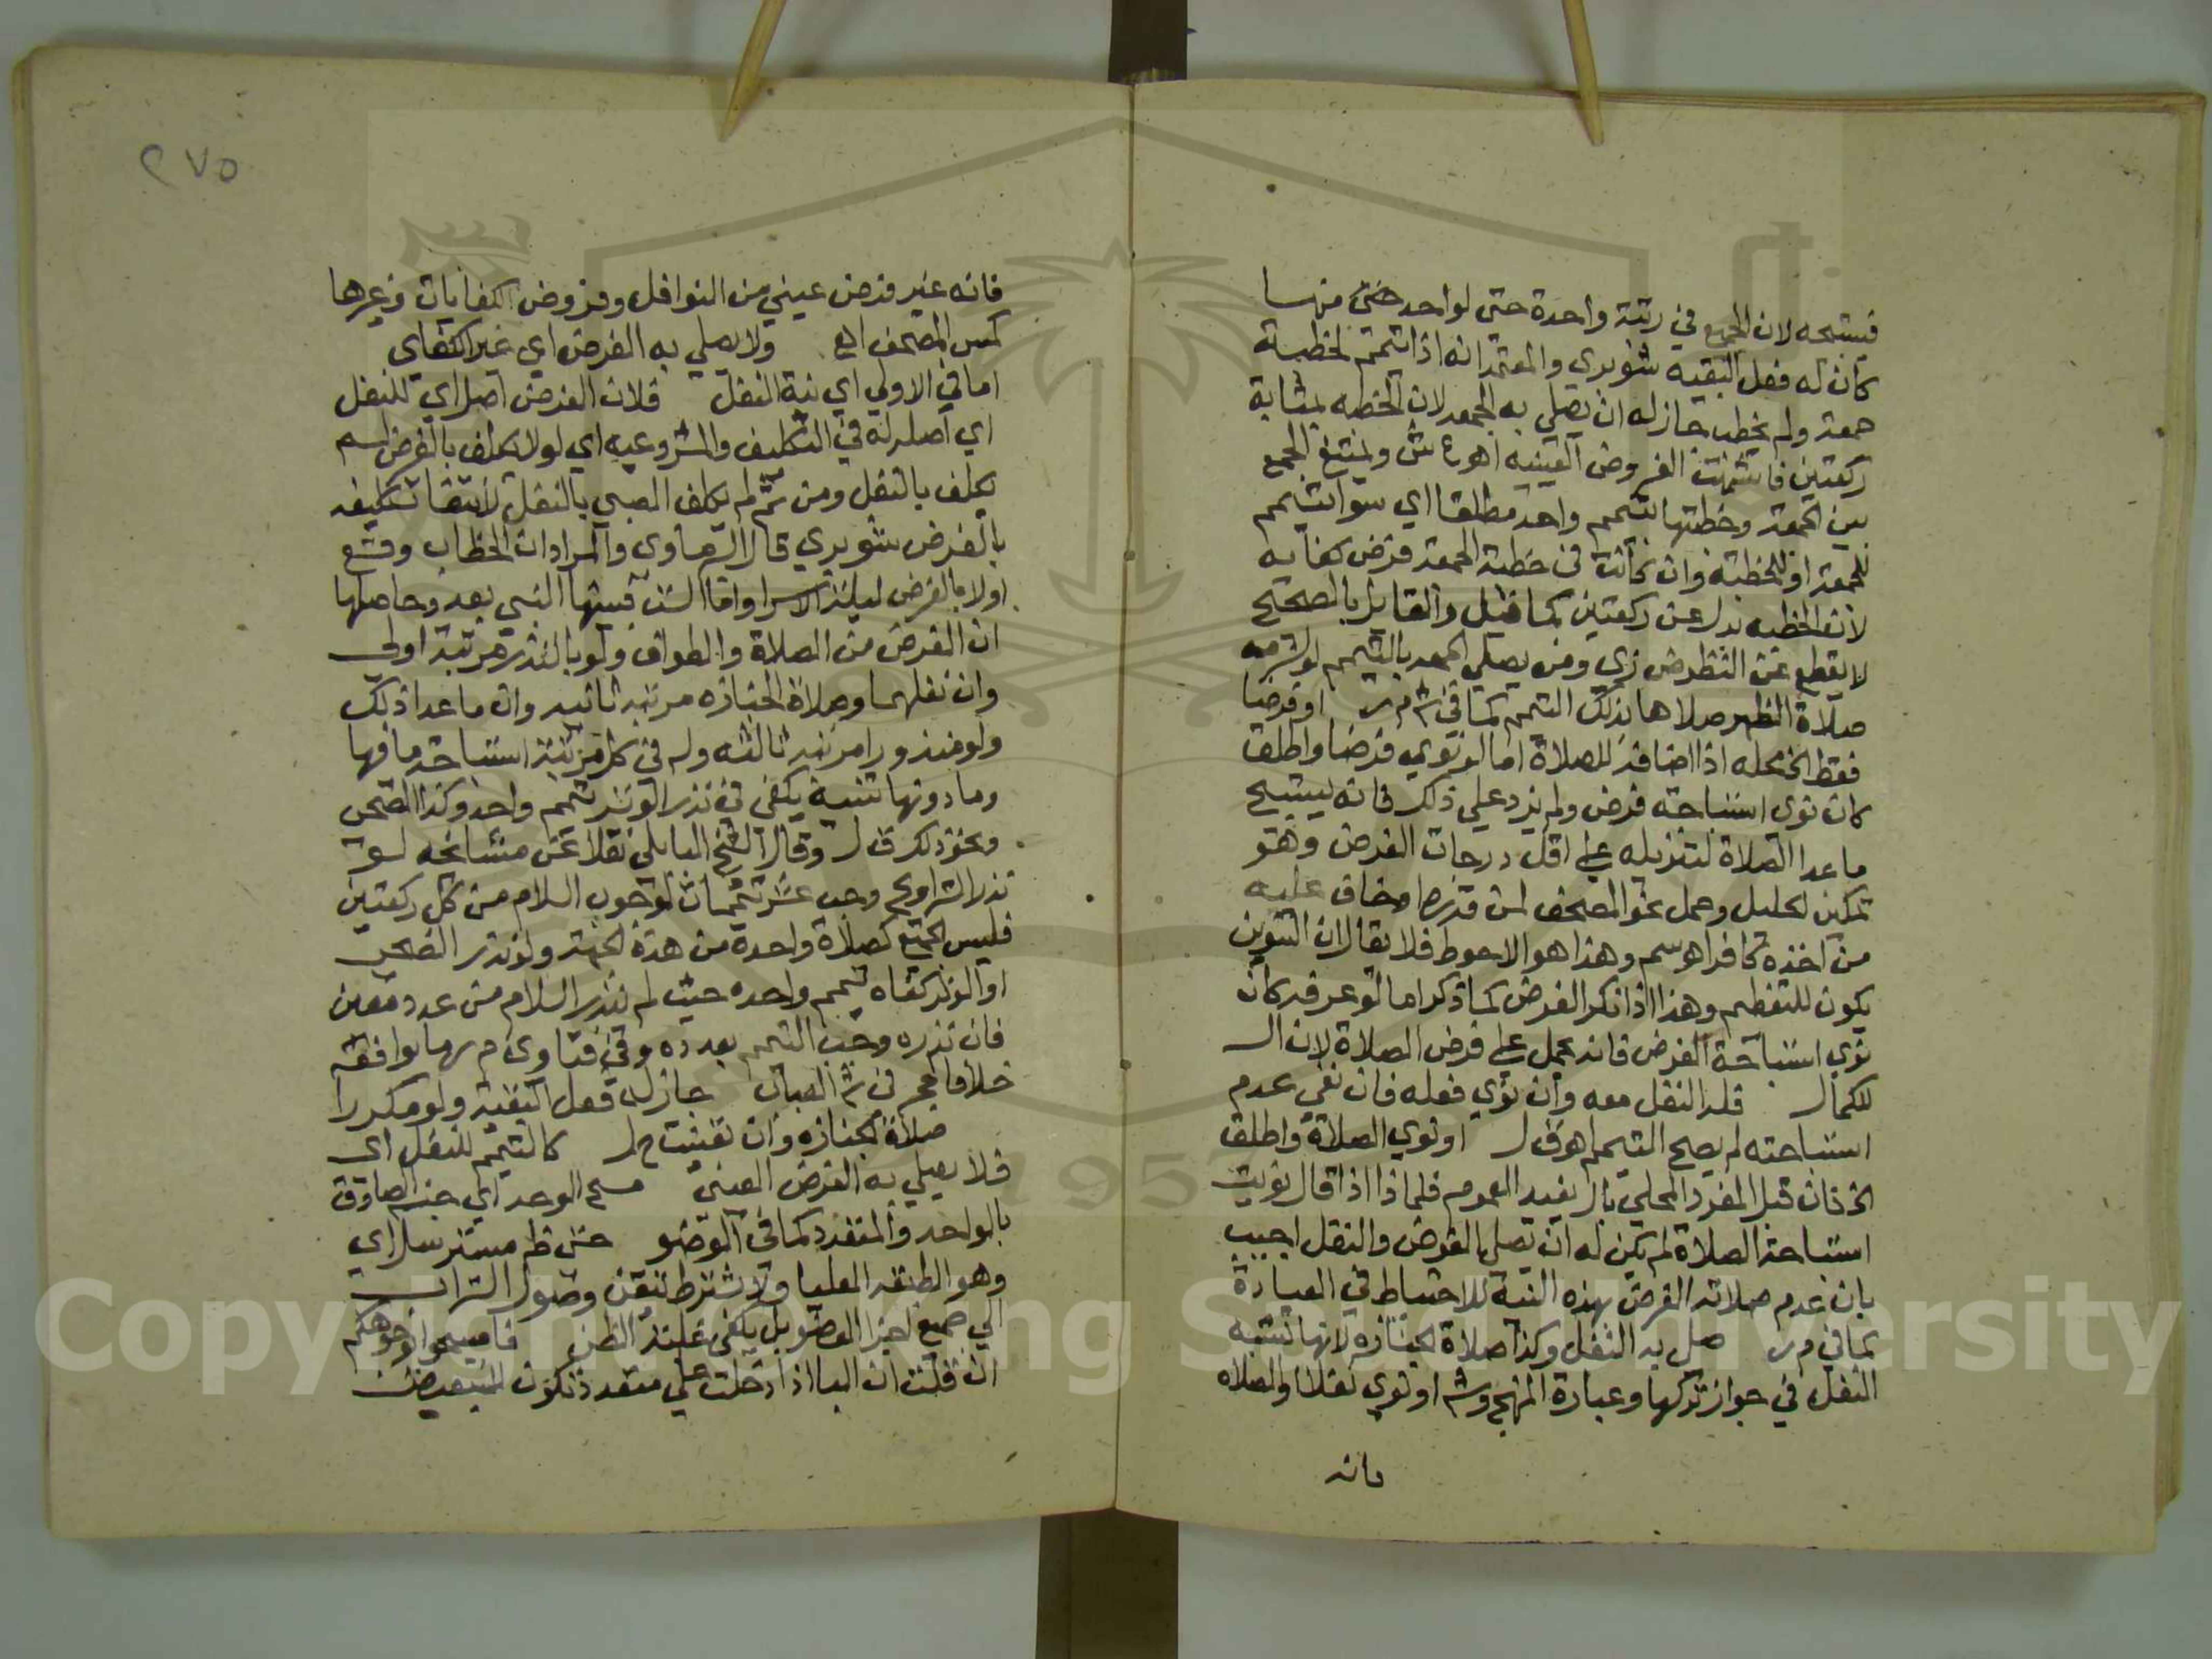 فيستبيحه لان الجميع في رتبة واحدة حتى لواحد منها
كان له فعل البقيه شوبري والمعتمد انه اذا تيمم لخطبة
جمعة ولم يخطب جاز له ان يصلي به الجمعه لان الخطبه بمثابة
ركعتين فاشبهت الفروض العينيه اهو ع ش ويمتنع الجمع
بين الجمعة وخطبتها بتيمم واحد مطلقا اي سوا تيمم
للجمعة او للخطبة وان كانت في خطبة الجمعة فرض كفايه
لان الخطبه بدل عن ركعتين كما قيل والقايل بالصحيح
لا يقطع عن النظر ض زي ومن يصلي الجمعه بالتيمم لو لزمه
صلاة الظهر صلاها بذلك التيمم كما في ش م ر او فرضا
فقط الخ محله اذا اضافه للصلاة اما لو نوي فرضا واطلق
كان نوى استباحة فرض ولم يزد علي ذلك فانه يستبيح
ما عدا الصلاة لتنزيله على اقل درجات الفرض وهو
تمكين لحليل وحمل نحو المصحف لمن قدر او خاف عليه
من اخذه كافر اهو سم وهذا هو الاحوط فلا يقال ان التنوين
يكون للتعظيم وهذا اذا نكر الفرض كما ذكر اما لو عرفه كان
نوي استباحة الفرض فانه يحمل على فرض الصلاة لان ال
للكمال فله النفل معه وان نوي فعله فان نفي عدم
استباحته لم يصح التيمم اهو ق ل او نوي الصلاة واطلق
الخ فان قيل المفرد المحلي بال يفيد العموم فلماذا اذا قال نويت
استباحة الصلاة لم يكن له ان يصلي الفرض والنفل اجيب
بان عدم صلاته الفرض بهذه النية للاحتياط في العبادة
كما في م ر صلي به النفل وكذا صلاة الجنازه لانها تشبه
النفل في جواز تركها وعبارة المنهج وش او نوي نفلا او الصلاه
فانه
٢٧٥
فانه غير فرض عيني من النوافل وفروض الكفايات وغيرها
كمس المصحف الخ ولا يصلي به الفرض اي غير الكفاي
اما في الاولي اي نية النفل فلان الفرض اصل اي للنفل
اي اصل له في التكليف والمشروعيه اي لولا يكلف بالفرض لم
يكلف بالنفل ومن ثم لم يكلف الصبي بالنفل لانتفا تكليفه
بالفرض شوبري قال الشعراوي والمراد ان الخطاب وقع
اولا بالفرض ليلة الاسرا واما السنن فبينها النبي بعد وحاصلها
ان الفرض من الصلاة والطواف ولو بالنذر مرتبة اولي
وان نفلهما وصلاة الجنازه مرتبه ثانيه وان ما عدا ذلك
ولو منذورا مرتبه ثالثه وله في كل مرتبة استباحة ما فيها
وما دونها تنبيه يكفي في نذر الوتر تيمم واحد وكذا الضحي
ونحو ذلك ق ل وقال الشيخ البابلي نقلا عن مشايخه لو
نذر التراويح وجب عشر تيممات لوجوب السلام من كل ركعتين
فليس الجميع كصلاة واحدة من هذة الجهة ولو نذر الضحي
او الوتر كفاه تيمم واحد حيث لم ينذر السلام من عدد معين
فان نذره وجب التيمم بعدده وفي فتاوي م ر ما يوافقه
خلافا لحجر في ش العباب جاز له فعل البقية ولو مكررا
صلاة الجنازه وان تعينت ح ل كالتيمم للنفل اي
فلا يصلي به الفرض العيني مسح الوجه اي جنسه الصادق
بالواحد والمتعدد كما في الوضو حتى ظاهر مسترسل اي
وهو الطبقه العليا ولا يشترط تيقن وصول التراب
الي جميع اجزا العضو بل يكفي غلبة الظن فامسحوا بوجوهكم
ان قلت ان البا اذا دخلت علي متعدد تكون للتبعيض